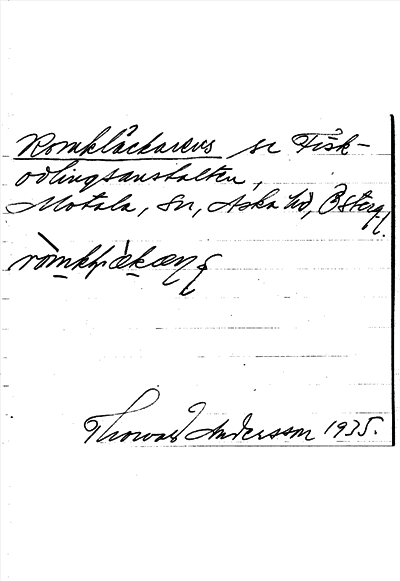 Romkläckarens se Fisk-
odlingsanstalten,
Motala, Sn, Aska hd, Östergl.
Thorvald Andersson 1935.